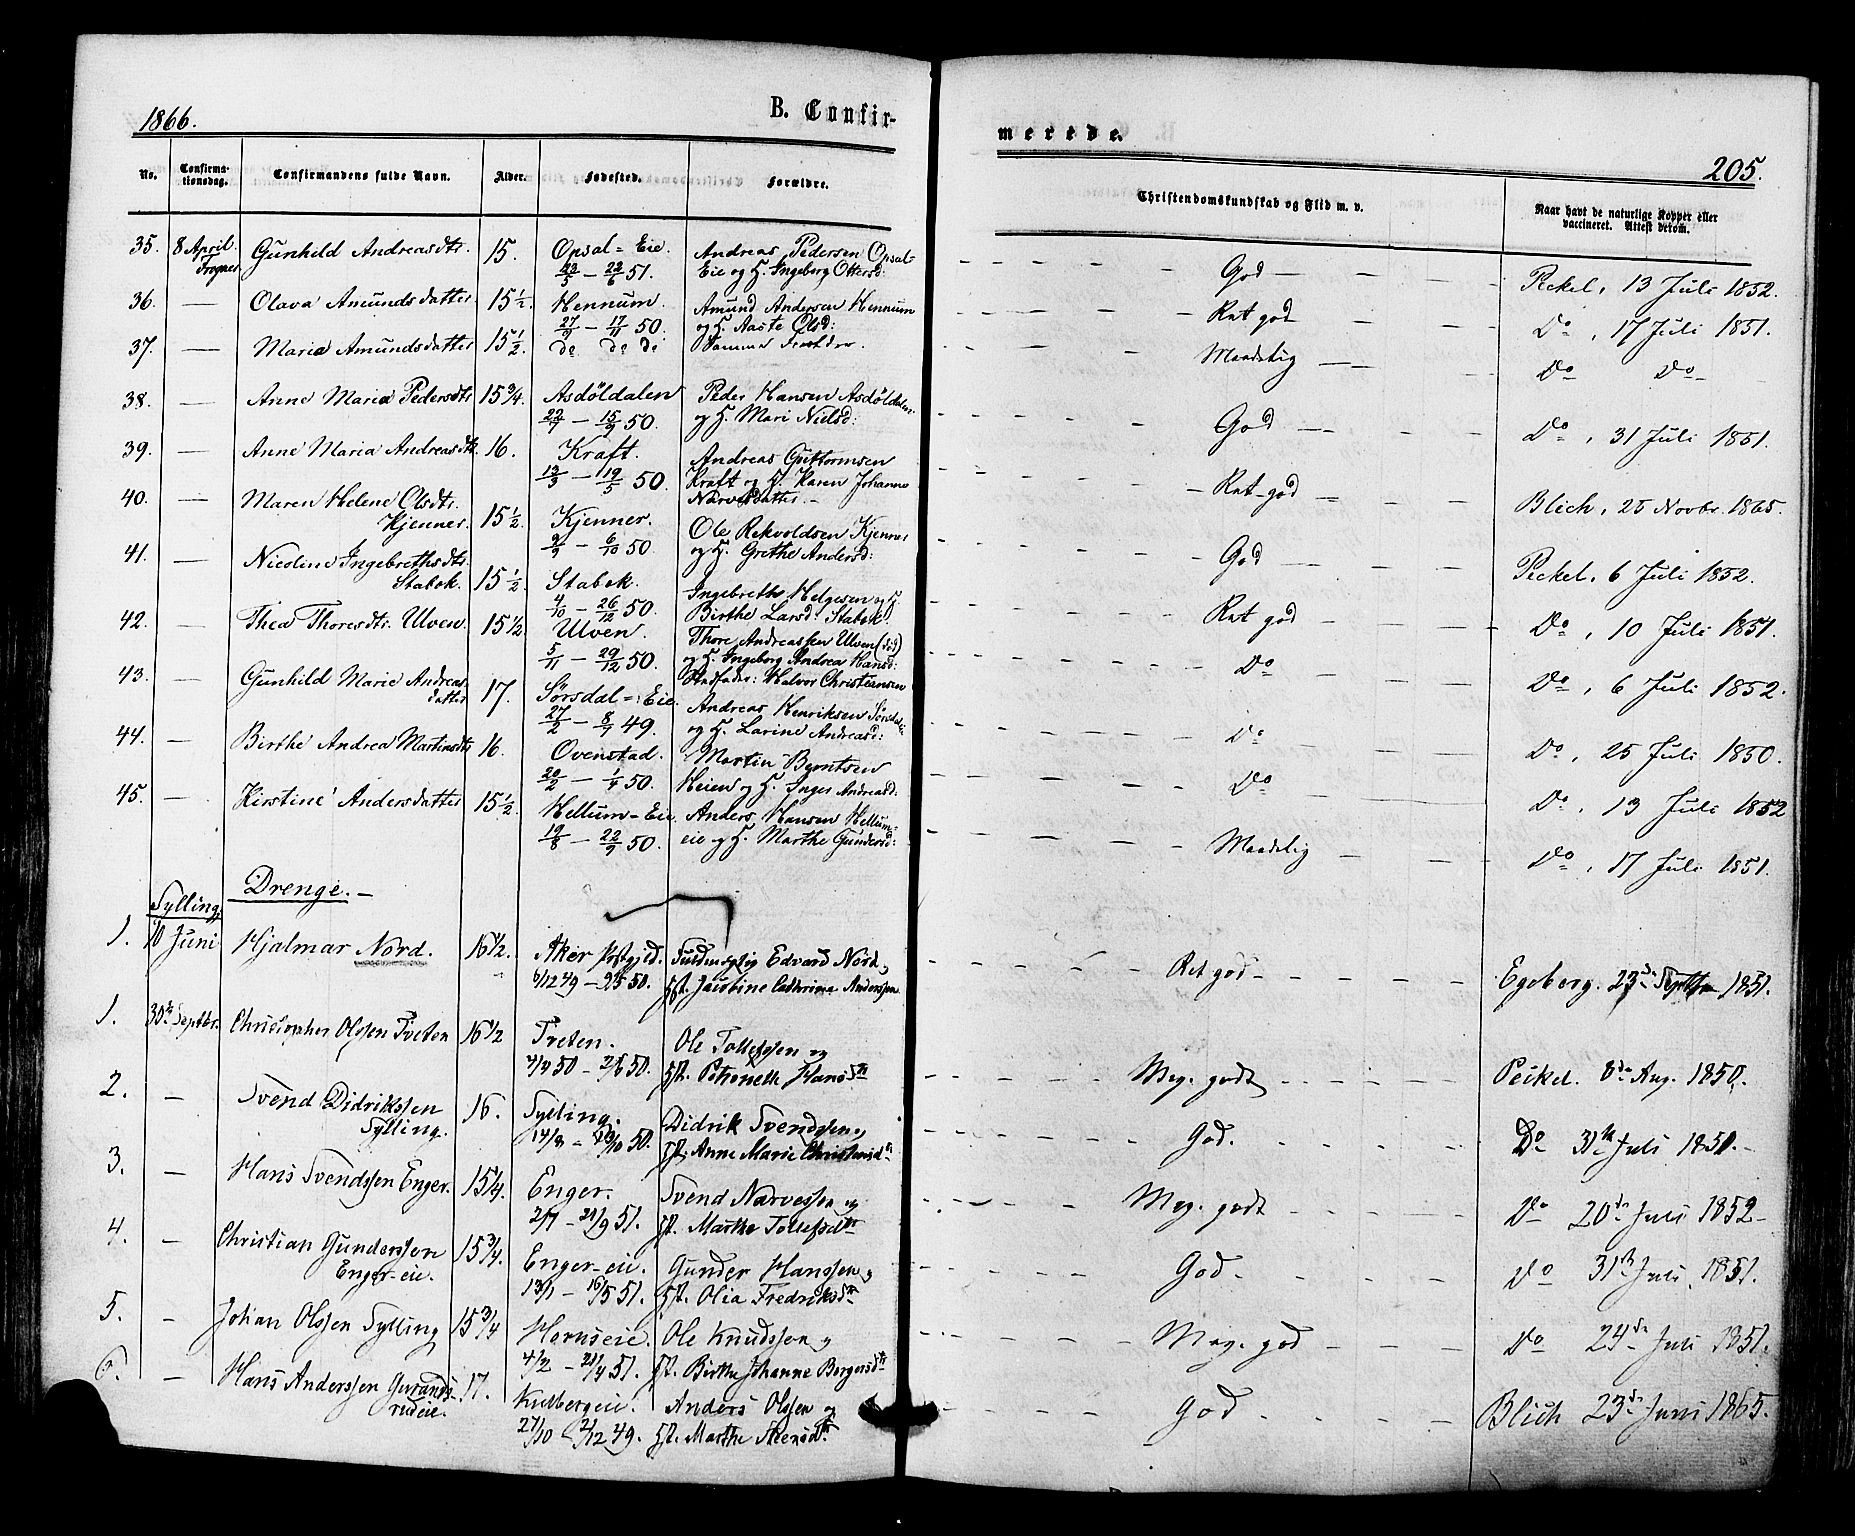 1866.
B. Confir-
merede.
205.
No. Confirmationsdag. Confirmandens fulde Navn. Alder. Fødested. Forældre. Christendomskundskab og Flid m. v. Naar havt de naturlige Kopper eller vaccineret. Attest derom.
35. 8 April Gunhild Andreasdtr. 15. Opsal-Eie. Andreas Pedersen Opsal- God Peckel, 13 Juli 1852.
Frogner 23/5 - 22/6 51. Eie og H. Ingeborg Ottersd:
36. — Olava Amundsdatter 15 1/2. Hennum. Amund Andersen Hennum Ret god Do, 17 Juli 1851.
27/9 - 17/11 50. og H. Aaste Olsd:
37. — Maria Amundsdatter 15 1/2. do do do Samme Forældre. Maadelig Do Do
38. — Anne Maria Pedersdtr 15 3/4. Asdöldalen Peder Hansen Asdöldalen God Do, 31 Juli 1851.
22/7 - 15/9 50. og H. Mari Nielsd:
39. — Anne Maria Andreasdtr. 16. Kraft. Andreas Guttormsen Ret god Blich, 25 Novbr. 1865.
13/3 - 19/5 50. Kraft og H. Karen Johanne
Narvesdatter.
40. — Maren Helene Olsdtr. Kjenner. 15 1/2. Kjenner. Ole Rekvoldsen Kjenner God Peckel, 6 Juli 1852.
9/9 - 6/10 50. og H. Grethe Andersd:
41. — Nicoline Ingebrethsdtr. Stabek. 15 1/2. Stabek. Ingebreth Helgesen og H. Ret god Do, 10 Juli 1851.
4/10 - 26/12 50. Birthe Larsd: Stabek.
42. — Thea Thoresdtr. Ulven. 15 1/2. Ulven. Thore Andreassen Ulven (död) Do Do, 6 Juli 1852.
5/11 - 29/12 50. og H. Ingeborg Andrea Hansd:
Stedfader: Halvor Christensen
43. — Gunhild Marie Andreas- datter 17. Sørsdal-Eie. Andreas Henriksen Sørsdal Do Do, 25 Juli 1850.
27/2 - 8/7 49. og H. Larine Andreasd:
44. — Birthe Andrea Martinsdtr 16. Ovenstad. Martin Berntsen Do Do, 13 Juli 1852
20/2 - 1/4 50. Heien og H. Inger Andreasd:
45. — Kirstine Andersdatter 15 1/2. Hellum-Eie. Anders Hansen Hellum- Maadelig Do, 17 Juli 1851.
19/8 - 22/9 50. eie og H. Marthe Gundersd:
Drenge.
Sylling
1. 10 Juni Hjalmar Nord. 16 1/2. Aker Prstgjeld. Edvard Nord, Ret god Egeberg. 1851.
6/12 49 - 50. Cathrina Anderssen
1. 30te Septbr. Christopher Olssen Tveten 16 1/2 Tveten. Ole Tollefssen og Meg. godt Peckel. 8de Aug. 1850.
4/4 50 - 2/6 50. Hst. Petronelle Hansdtr
2. — Svend Didrikssen Sylling. 16. Sylling. Didrik Svendssen og God. Do 31te Juli 1851.
14/8 - 50. Hst. Anne Marie Christensdtr
3. — Hans Svendssen Enger. 15 1/4. Enger. Svend Narvessen og Meg. godt Do 20de Juli 1852
2/7 - 21/9 51. Hst. Marthe Tollefsdtr
4. — Christian Gunderssen Enger-eie. 15 3/4. Enger-eie. Gunder Hanssen og God. Do 31te Juli 1851.
13/1 - 16/5 51. Hst. Olia Fredriksdtr
5. — Johan Olssen Sylling 15 3/4 Hornseie. Ole Knudssen og Meg. god Do 24de Juli 1851.
4/2 - 21/4 51. Hst. Birthe Johanne Borgersdtr
6. — Hans Anderssen Gurands- rudeie. 17. Kulbergeie. Anders Olssen og God Blich 23de Juni 1865.
27/10 - 2/12 49. Hst. Marthe Steensdtr.